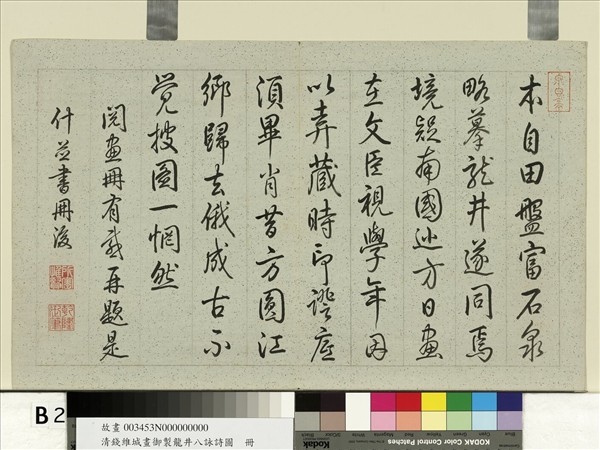 本自田盤富石泉
略摹龍井遂同焉
境疑南國巡方日畫
在文臣視學年因
以弆藏時印證底
須畢肖昔方圓江
鄉歸去俄成古不
覺披圖一惘然
閱畫冊有感再題是
什並書冊後
B 2
故畫 003453N000000000
清錢維城畫御製龍井八詠詩圖 冊